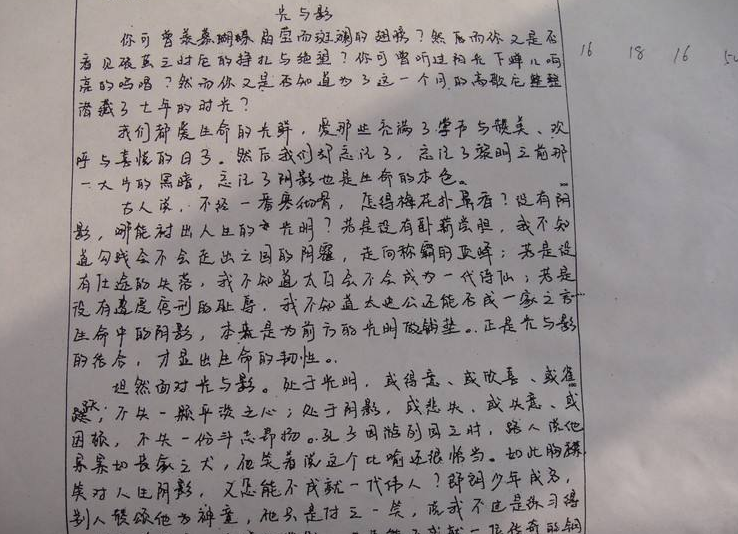 光与影
你可曾羡慕蝴蝶晶莹而斑斓的翅膀？然而你又是否
看见破茧之时它的挣扎与绝望？你可曾听过阳光下蝉儿响
亮的鸣唱？然而你又是否知道为了这一个月的高歌它整整
潜藏了七年的时光？
我们都爱生命的光鲜，爱那些充满了掌声与赞美、欢
呼与喜悦的日子。然后我们却忘记了，忘记了黎明之前那
一大片的黑暗，忘记了阴影也是生命的本色。
古人说，不经一番寒彻骨，怎得梅花扑鼻香？没有阴
影，哪能衬出人生的光明？若是没有卧薪尝胆，我不知
道勾践会不会走出亡国的阴霾，走向称霸的巅峰；若是没
有仕途的失落，我不知道太白会不会成为一代诗仙；若是
没有遭度宫刑的耻辱，我不知道太史公还能否成一家之言…
生命中的阴影，本就是为前方的光明做铺垫。正是光与影
的结合，才显出生命的韧性。
坦然面对光与影。处于光明，或得意、或欣喜、或雀
跃，不失一颗平淡之心；处于阴影，或悲失、或失意、或
困顿，不失一份斗志昂扬。孔子周游列国之时，路人说他
累累如丧家之犬，他笑着说这个比喻还很恰当。如此胸襟
笑对人生阴影，又怎能不成就一代伟人？郎朗少年成名，
别人赞颂他为神童，他只是付之一笑，说我不过是练习得
16 18 16